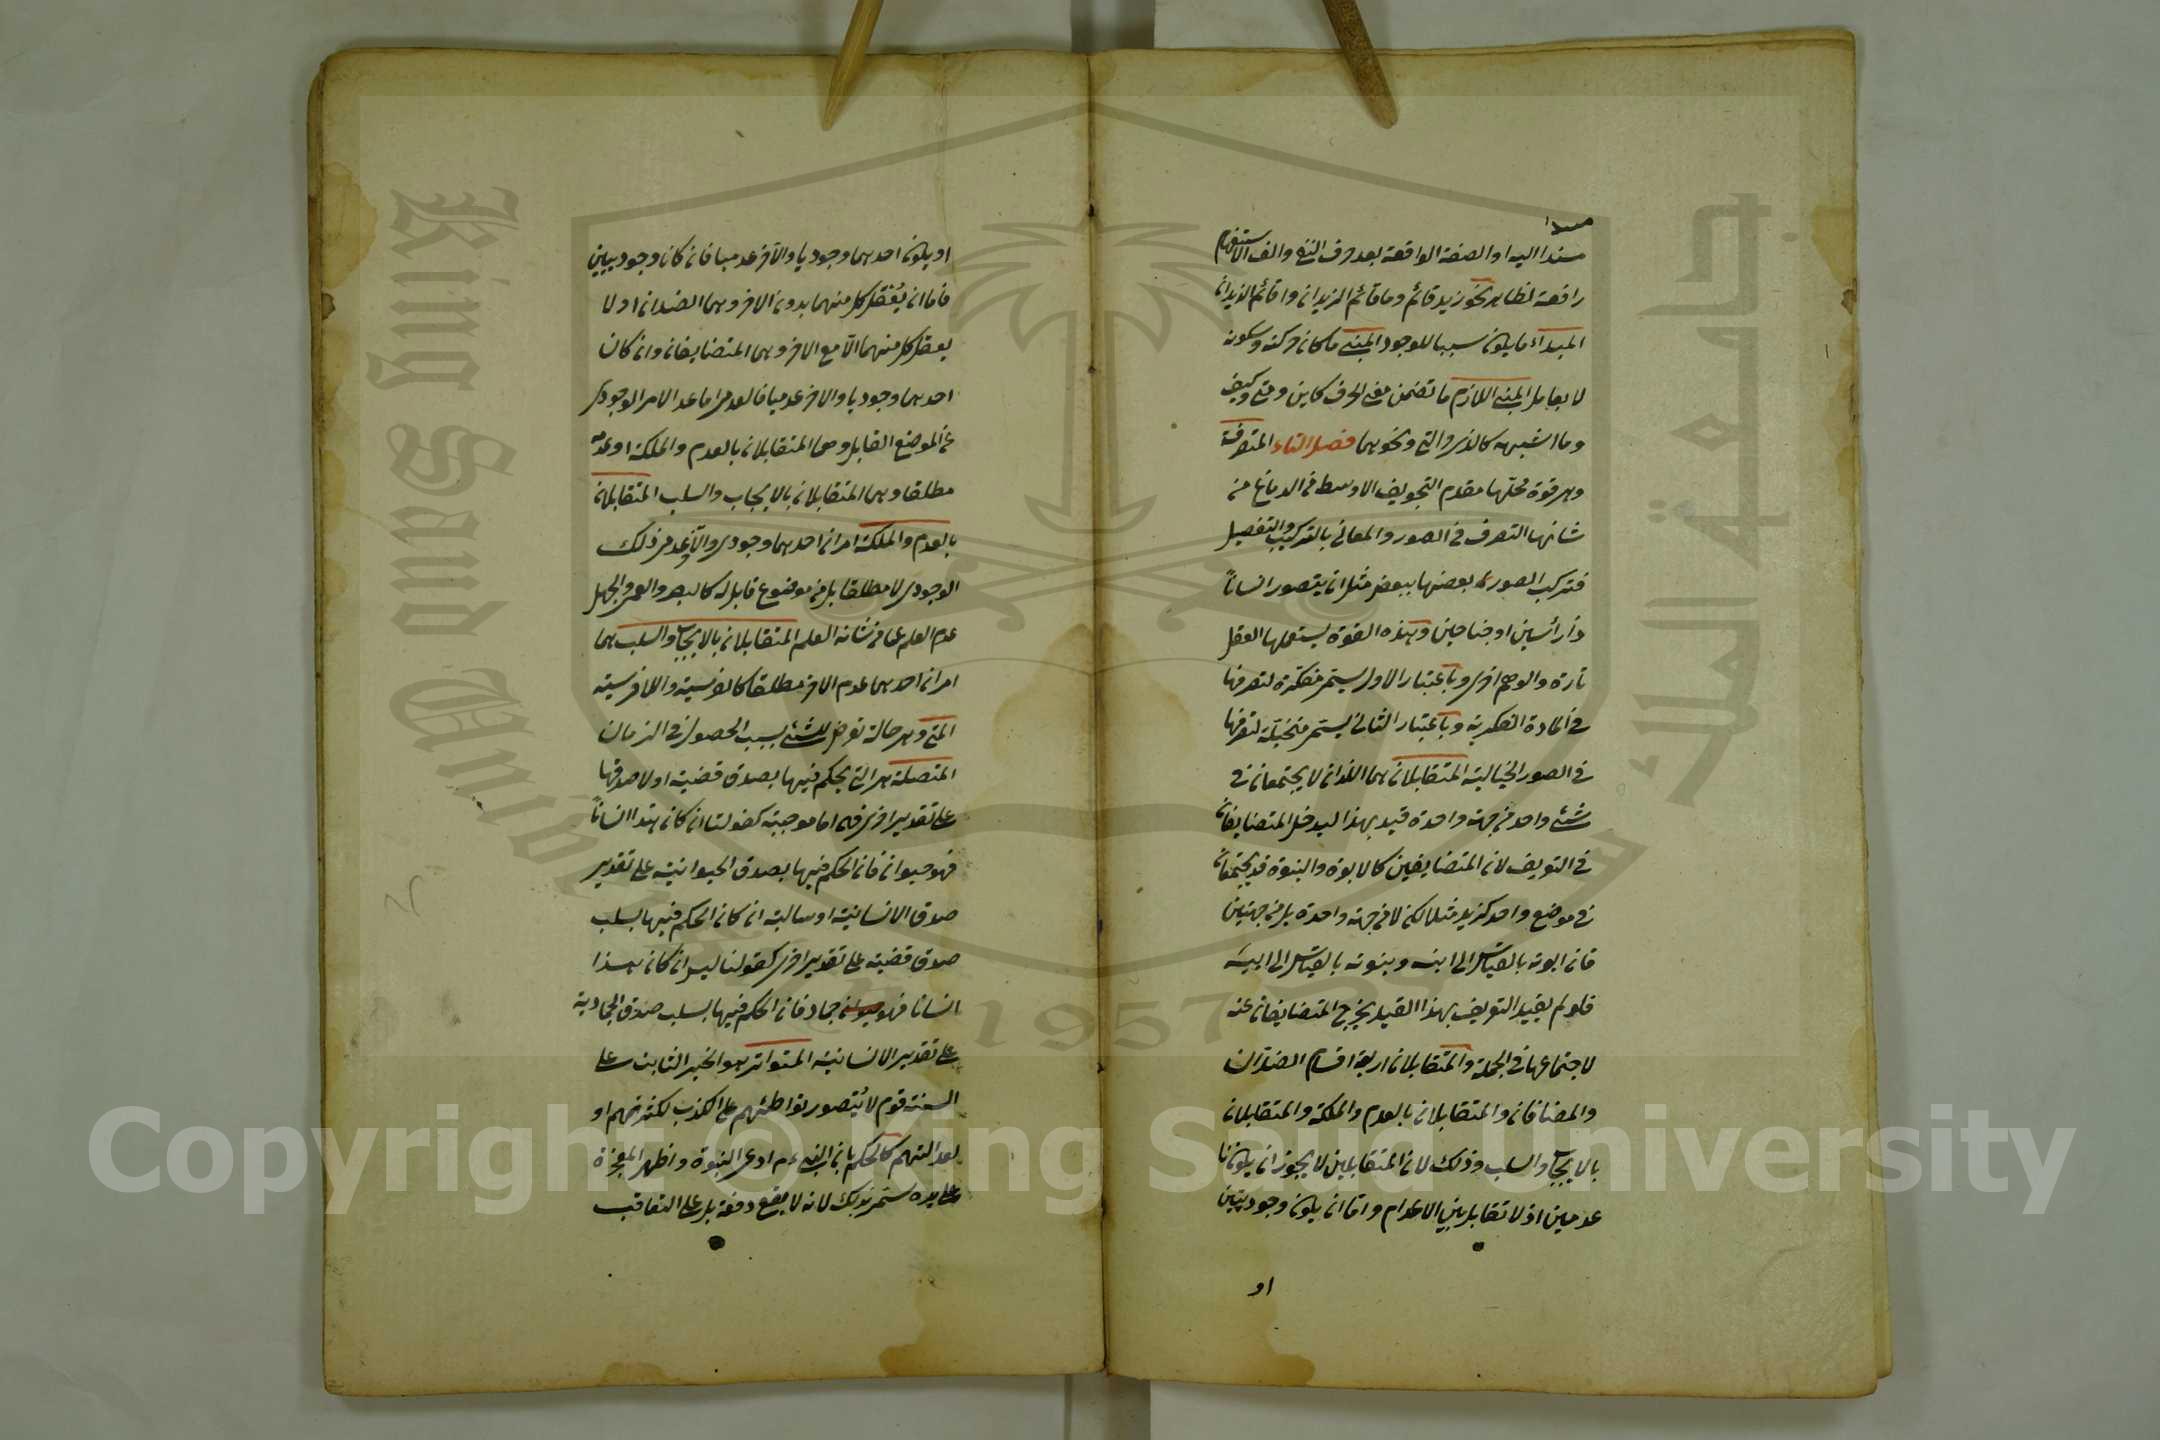 مسندا
مسندا اليه او الصفة الواقعة بعد حرف النفي والف الاستفهام
رافعة لظاهر نحو زيد قائم وما قائم الزيدان واقائم الزيدان
المبداء ما يكون سببا للوجود المبني ما كان حركته وسكونه
لا بعامل المبني اللازم ما تضمن معنى الحرف كاين ومتى وكيف
وما اشبهه كالذى والتى ونحوهما فصل التاء المتصرفة
وهى قوة محلها مقدم التجويف الاوسط فى الدماغ من
شانها التصرف فى الصور والمعانى بالتركيب والتفصيل
فتركب الصورة بعضها ببعض مثل ان يتصور انسانا
ذا رأسين او جناحين وهذه القوة يستعملها العقل
تارة والوهم اخرى وباعتبار الاول يسمى مفكرة لتصرفها
فى المادة الفكرية وباعتبار الثانى يسمى متخيلة لتصرفها
فى الصور الخيالية المتقابلان هما اللذان لا يجتمعان فى
شئ واحد من جهة واحدة قيد بهذا ليدخل المتضايفان
فى التعريف لان المتضايفين كالابوة والبنوة قد يجتمعان
فى موضع واحد كزيد مثلا لكن لا من جهة واحدة بل من جهتين
فان ابوته بالقياس الى ابنه وبنوته بالقياس الى ابيه
فلو لم يقيد التعريف بهذا القيد يخرج المتضايفان عنه
لاجتماعهما فى الجملة والمتقابلان اربعة اقسام الضدان
والمضافان والمتقابلان بالعدم والملكة والمتقابلان
بالايجاب والسلب وذلك لان المتقابلين لا يجوز ان يكونا
عدميين اذ لا تقابل بين الاعدام واما ان يكونا وجوديين
او
او يكون احدهما وجوديا والآخر عدميا فان كانا وجوديين
فاما ان يعقل كل منهما بدون الاخر وهما الضدان او لا
يعقل كل منهما الا مع الاخر وهما المتضايفان وان كان
احدهما وجوديا والاخر عدميا فالعدمى اما عدم الامر الوجودى
عن الموضع القابل وهما المتقابلان بالعدم والملكة او عدمه
مطلقا وهما المتقابلان بالايجاب والسلب المتقابلان
بالعدم والملكة امران احدهما وجودى والآخر عدم ذلك
الوجودى لا مطلقا بل من موضوع قابل له كالبصر والعمى والجهل
عدم العلم عما من شانه العلم المتقابلان بالايجاب والسلب هما
امران احدهما عدم الاخر مطلقا كالفرسية واللافرسية
المتى وهى حالة تعرض للشئ بسبب الحصول فى الزمان
المتصلة هى التى يحكم فيها بصدق قضية او لا صدقها
على تقدير اخرى فهى اما موجبة كقولنا ان كان هذا انسانا
فهو حيوان فان الحكم فيها بصدق الحيوانية على تقدير
صدق الانسانية او سالبة ان كان الحكم فيها بسلب
صدق قضية على تقدير اخرى كقولنا ليس ان كان هذا
انسانا فهو جماد فان الحكم فيها بسلب صدق الجمادية
على تقدير الانسانية المتواتر هو الخبر الثابت على
السنة قوم لا يتصور تواطئهم على الكذب لكثرتهم او
لعدالتهم كالحكم بان النبى عم ادعى النبوة واظهر المعجزة
على يده سمى بذلك لانه لا يقع دفعة بل على التعاقب
Copyright © King Saud University
King Saud University
جامعة الملك سعود
1957